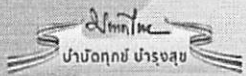 บำบัดทุกข์ บำรุงสุข